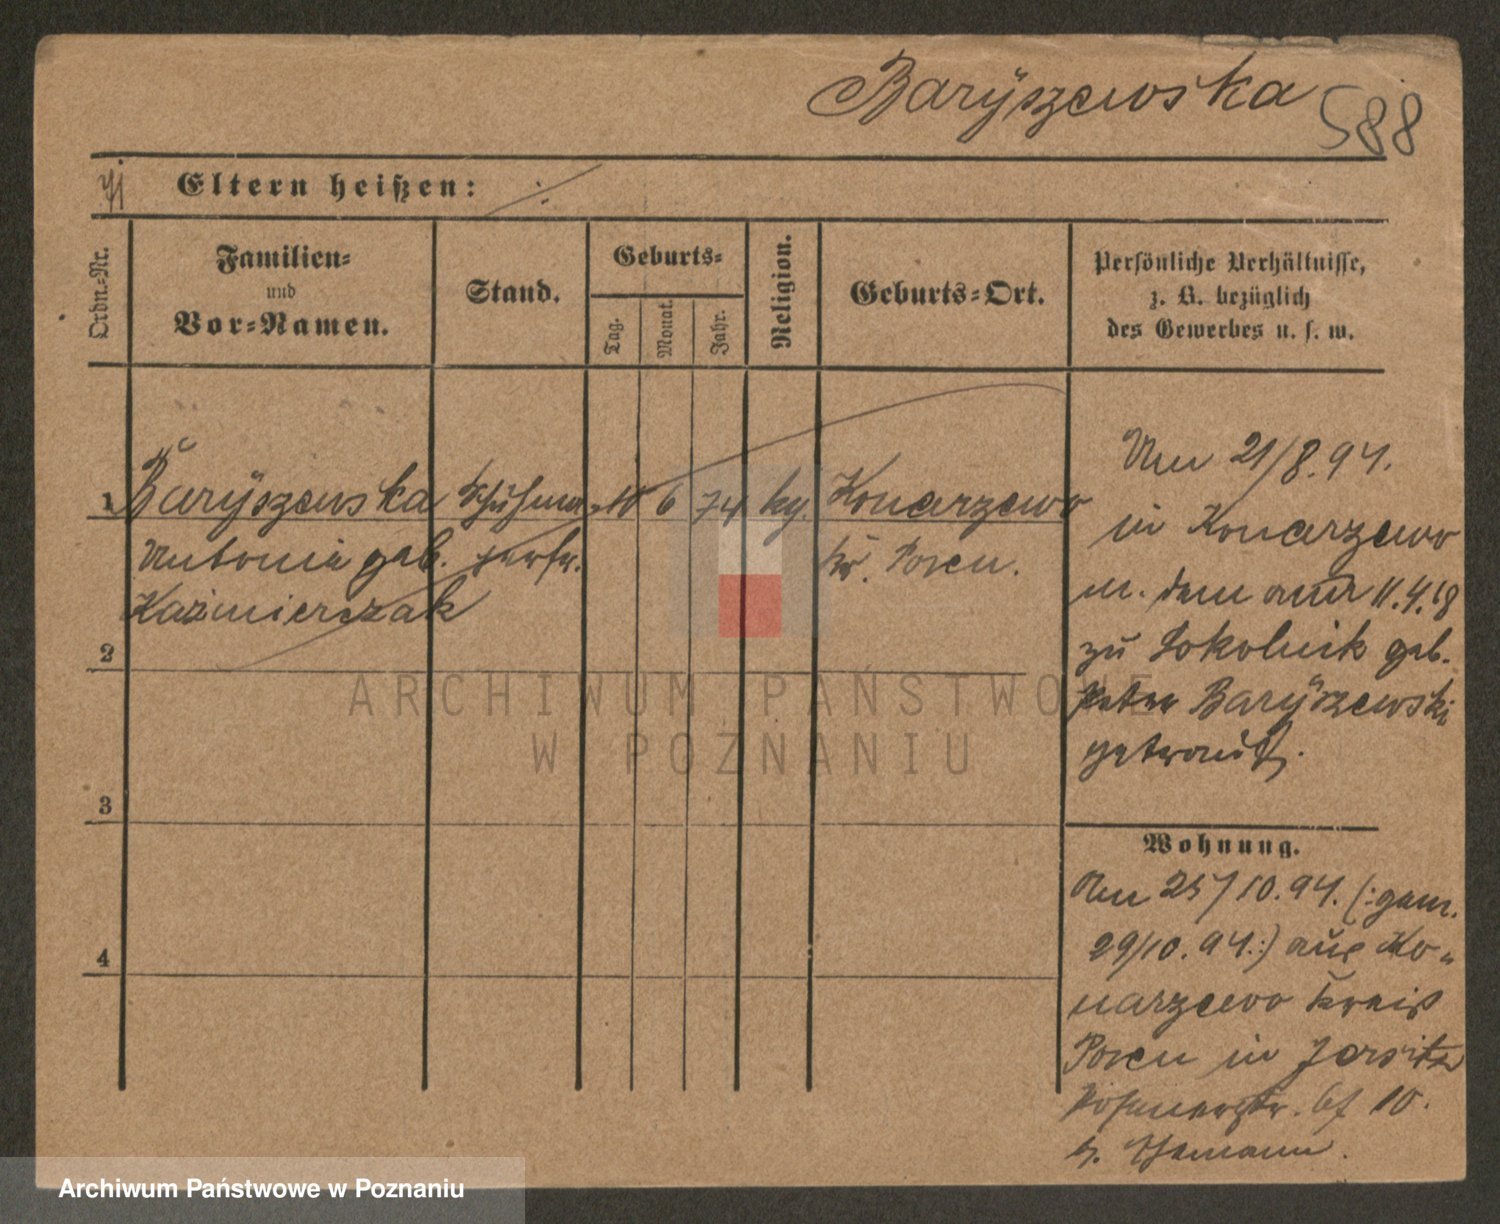 Baryszewska 588
Eltern heißen:
Ordn.-Nr.
Familien-
und
Vor-Namen.
Stand.
Geburts-
Tag.
Monat.
Jahr.
Religion.
Geburts-Ort.
Persönliche Verhältnisse,
z. B. bezüglich
des Gewerbes u. s. w.
1 Baryszewska Schuhma- 10 6 74 kg. Konarzewo
Antonie geb. Kr. Posen.
Kaźmierczak
2
3
4
Am 21/8.94.
in Konarzewo
m. dem am 11.4.
zu Sokolnik geb.
Peter Baryszewski
getrauft.
Wohnung.
Am 25/10.94. (:gem.
29/10.94.:) aus Ko-
narzewo Kreis
Posen in Jersitz
10.
ARCHIWUM PAŃSTWOWE
W POZNANIU
Archiwum Państwowe w Poznaniu